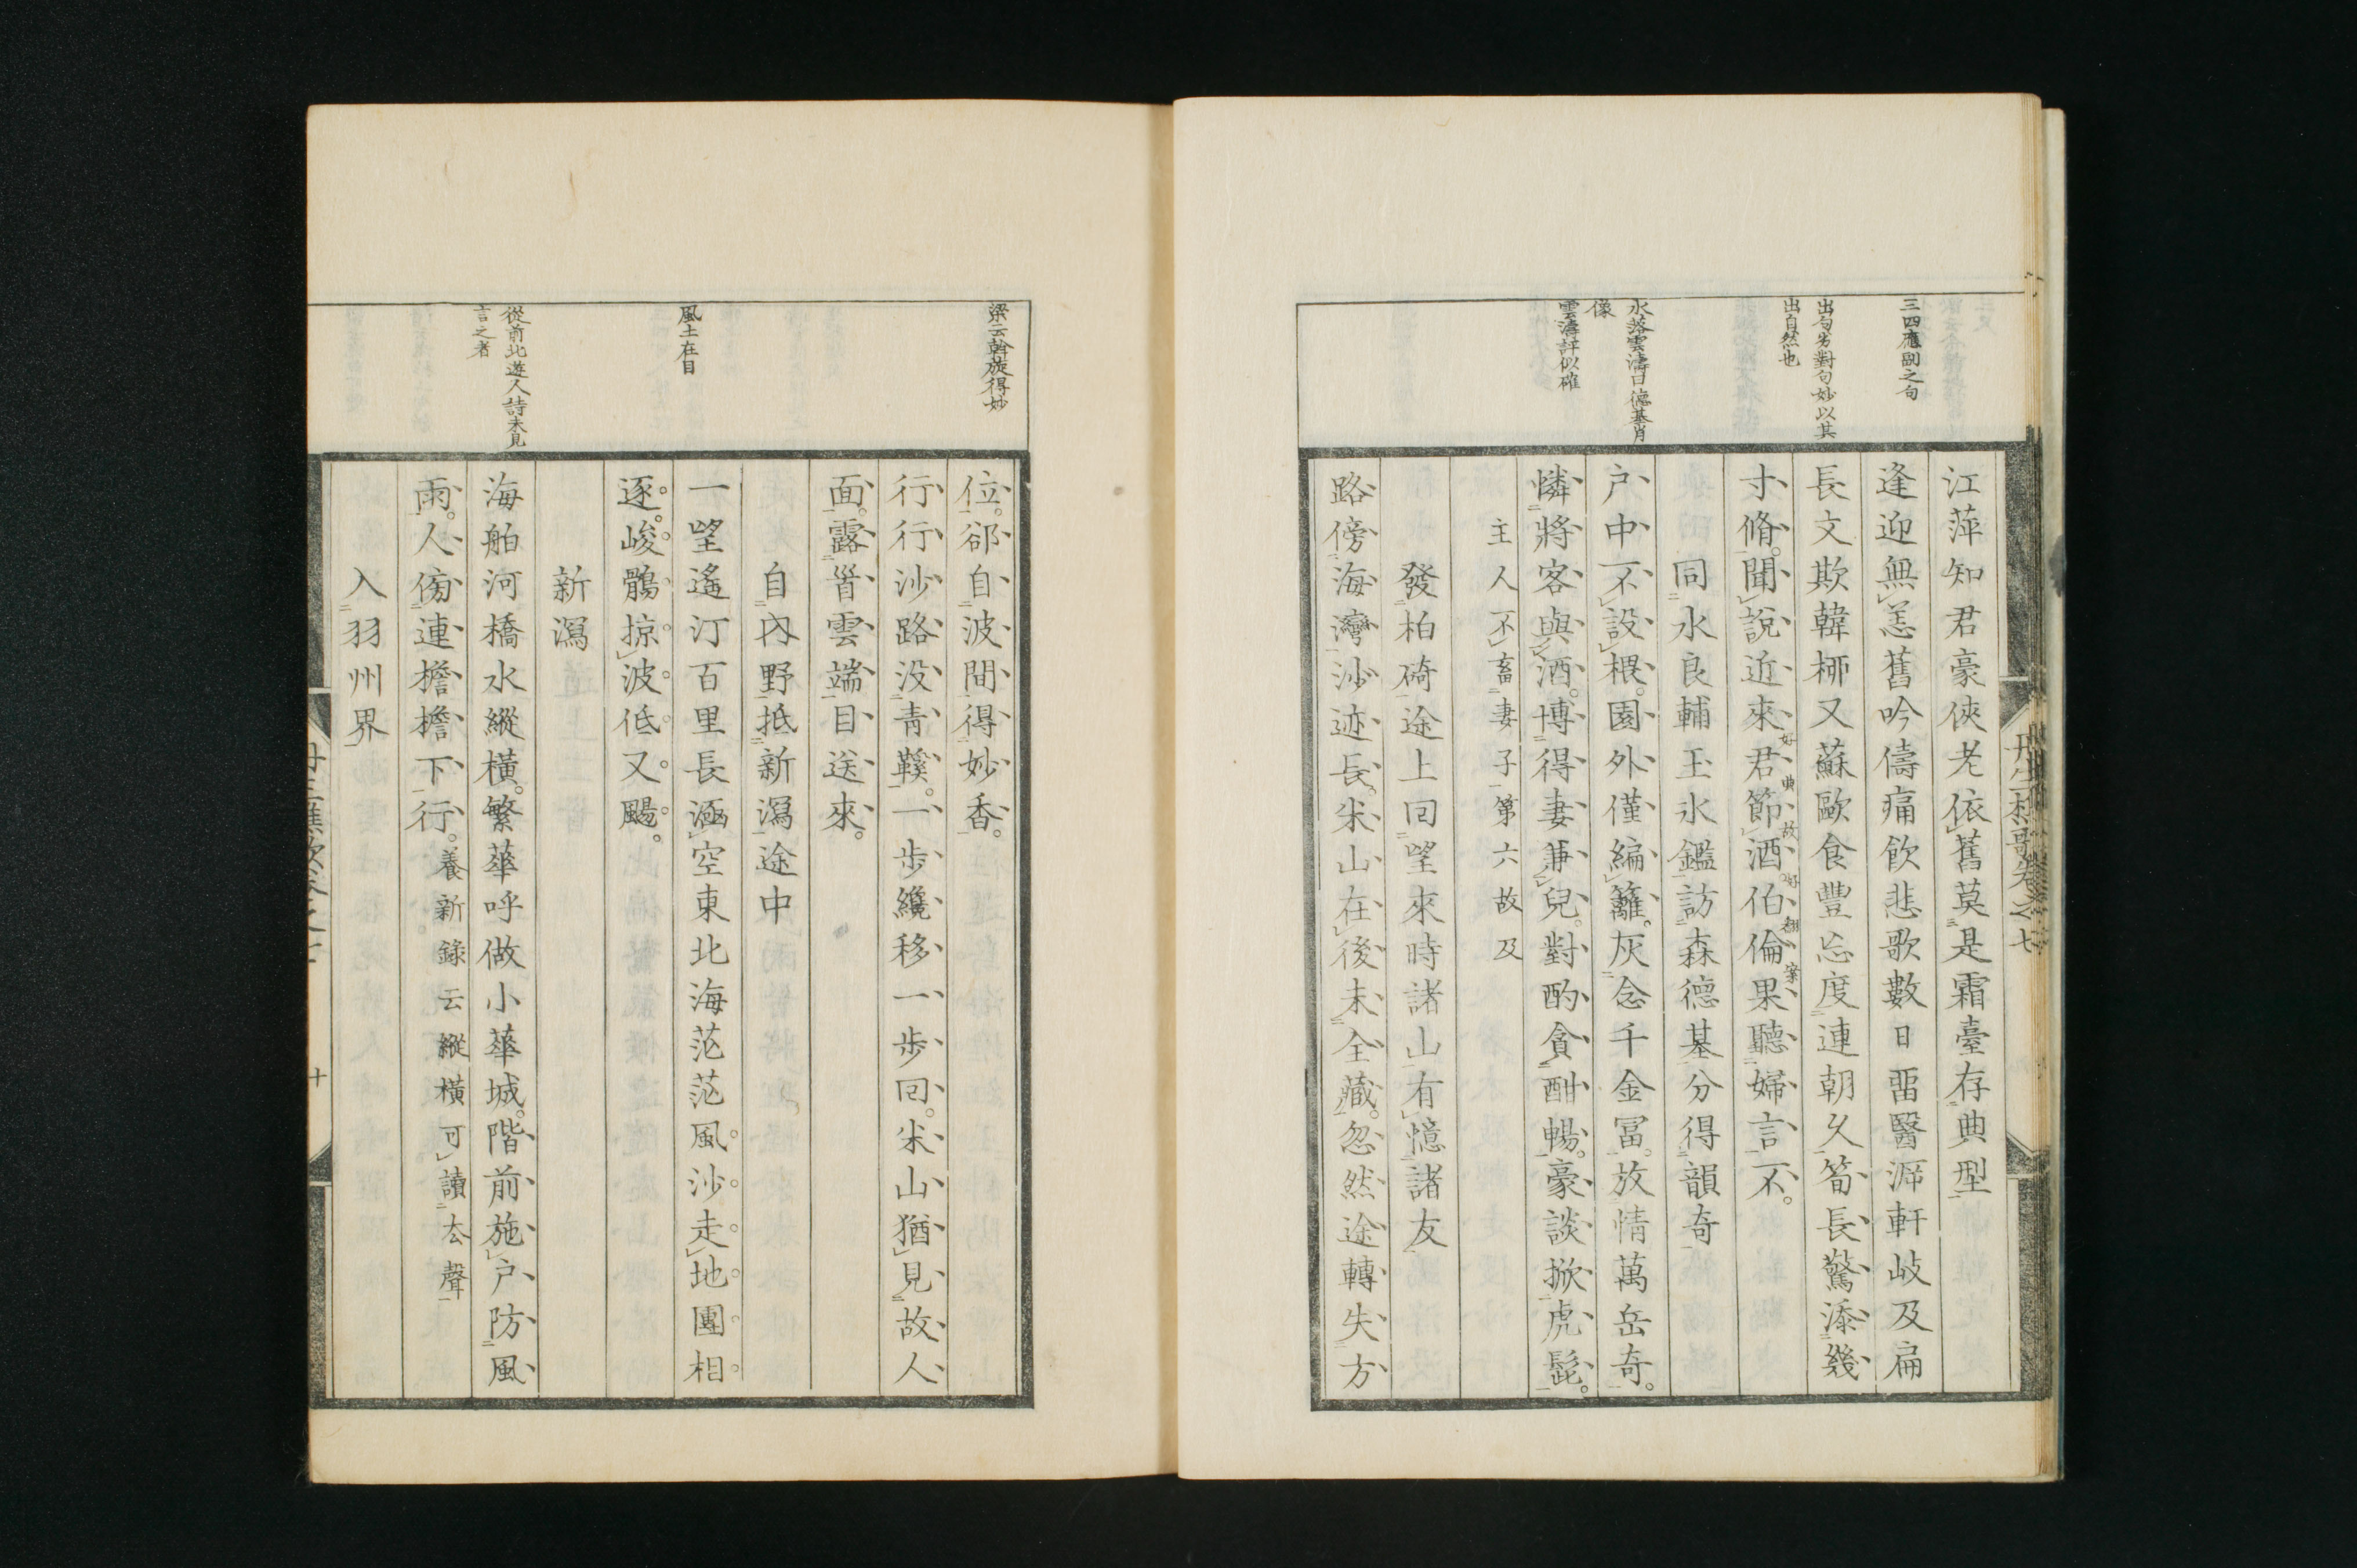 三四應酬之句
出句劣對句妙以其
出自然也
水落雲濤曰德基肖
像
雲濤評似確
江萍知君豪俠老依舊莫是霜臺存典型
逢迎無恙舊吟儔痛飲悲歌數日畱醫源軒岐及扁
長文欺韓柳又蘇歐食豐忘度連朝久筍長驚添幾
寸脩聞說近來君節酒伯倫果聽婦言不
好典故好翻案
同水良輔玉水鑑訪森德基分得韻奇
戶中不設椳園外僅編籬灰念千金冨放情萬岳奇
憐將客與酒博得妻兼兒對酌貪酣暢豪談掀虎髭
主人不畜妻子第六故及
發柏碕途上回望來時諸山有憶諸友
路傍海灣沙迹長米山在後未全藏忽然途轉失方
梁云斡旋得妙
風土在目
從前北遊人詩未見
言之者
位郤自波間得妙香
行行沙路没青鞵一步纔移一步回米山猶見故人
面露眥雲端目送來
自內野抵新瀉途中
一望遙汀百里長涵空東北海茫茫風沙走地團相
逐峻鶻掠波低又颺
新瀉
海舶河橋水縱橫繁華呼做小華城階前施戶防風
雨人傍連檐檐下行養新錄云縱橫可讀去聲
入羽州界
十